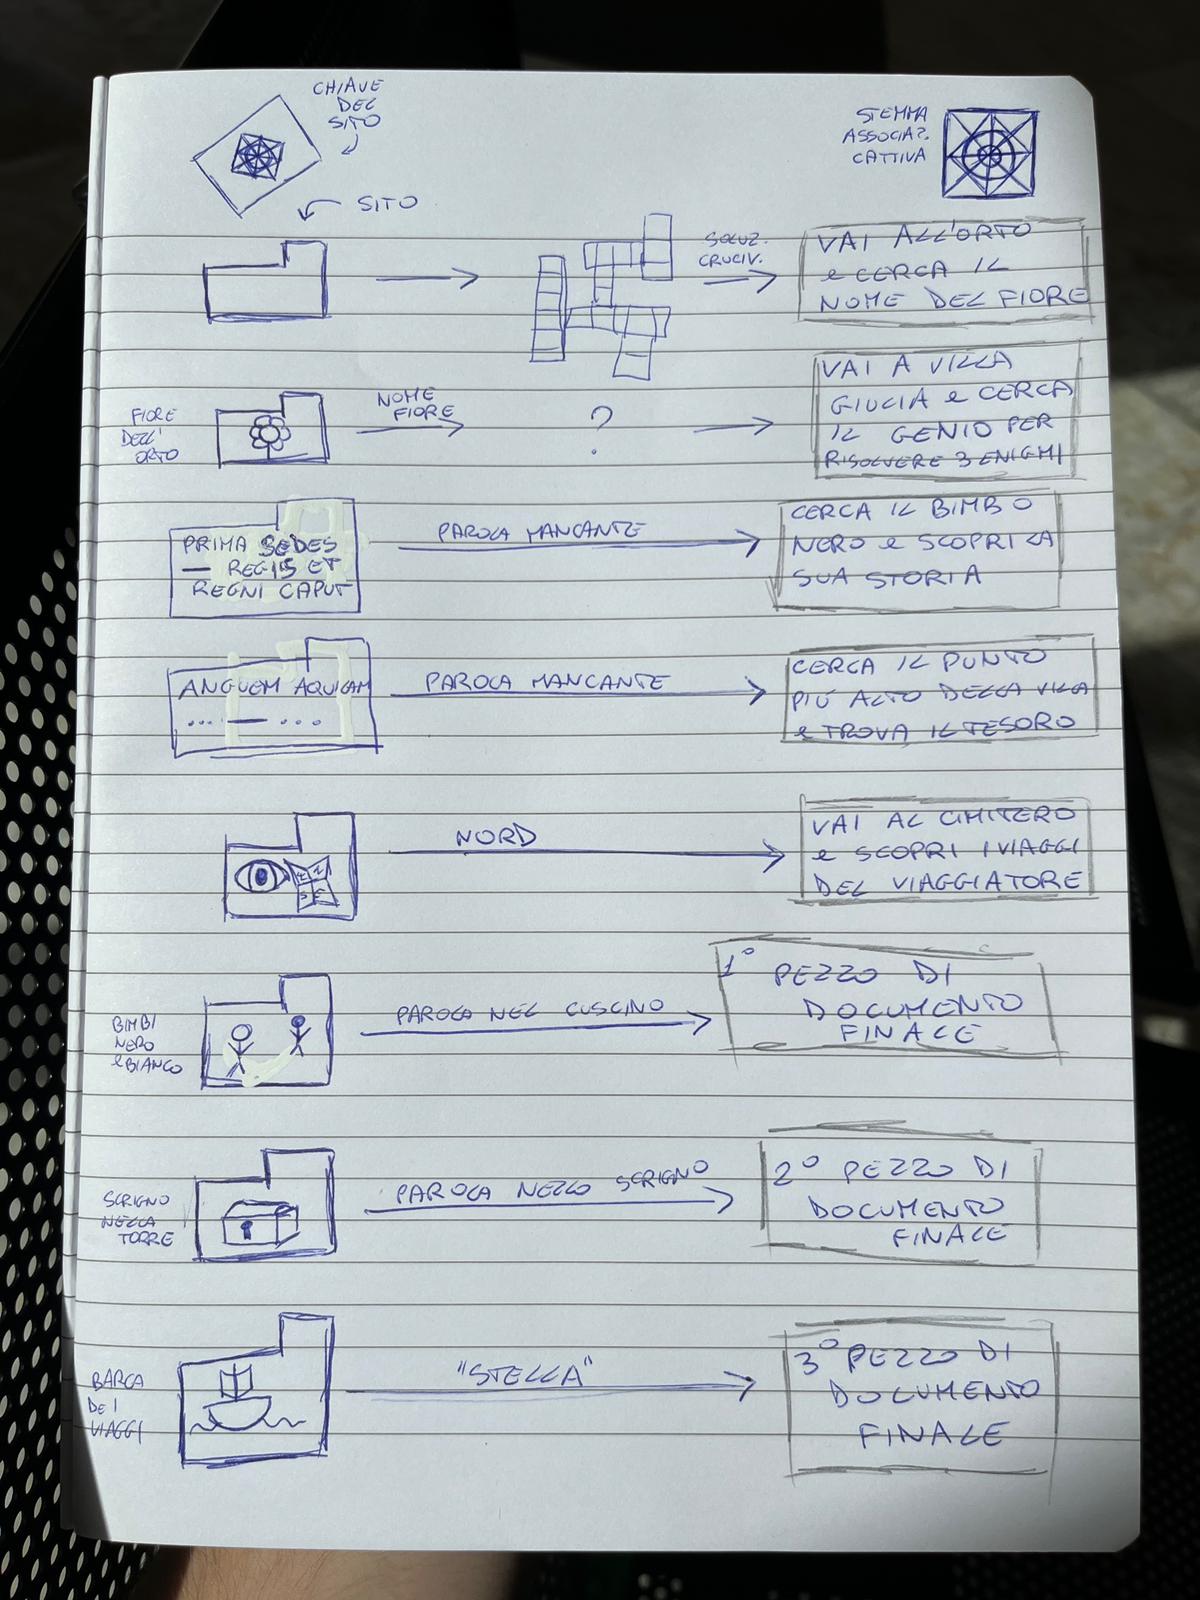 CHIAVE
DEL
SITO
STEMMA
ASSOCIAZ.
CATTIVA
SITO
SOLUZ.
CRUCIV.
VAI ALL'ORTO
e CERCA IL
NOME DEL FIORE
FIORE
DELL'
ORTO
NOME
FIORE
?
VAI A VILLA
GIULIA e CERCA
IL GENIO PER
RISOLVERE 3 ENIGMI
PRIMA SEDES
— REGIS ET
REGNI CAPUT
PAROLA MANCANTE
CERCA IL BIMBO
NERO e SCOPRI LA
SUA STORIA
ANGUEM AQUILAM
... — ...
PAROLA MANCANTE
CERCA IL PUNTO
PIÙ ALTO DELLA VILLA
e TROVA IL TESORO
NORD
VAI AL CIMITERO
e SCOPRI I VIAGGI
DEL VIAGGIATORE
BIMBI
NERO
e BIANCO
PAROLA NEL CUSCINO
1° PEZZO DI
DOCUMENTO
FINALE
SCRIGNO
NELLA
TORRE
PAROLA NELLO SCRIGNO
2° PEZZO DI
DOCUMENTO
FINALE
BARCA
DEI
VIAGGI
"STELLA"
3° PEZZO DI
DOCUMENTO
FINALE